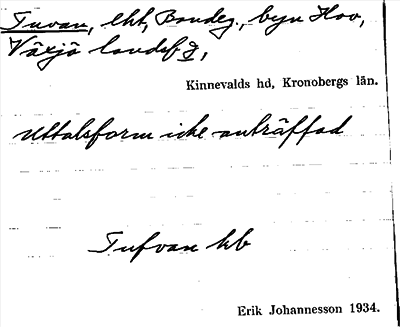 Tuvan, lht, Bondeg., byn Hov,
Växjö landsf.,
Kinnevalds hd, Kronobergs län.
Uttalsform icke anträffad
Tufvan kb
Erik Johannesson 1934.